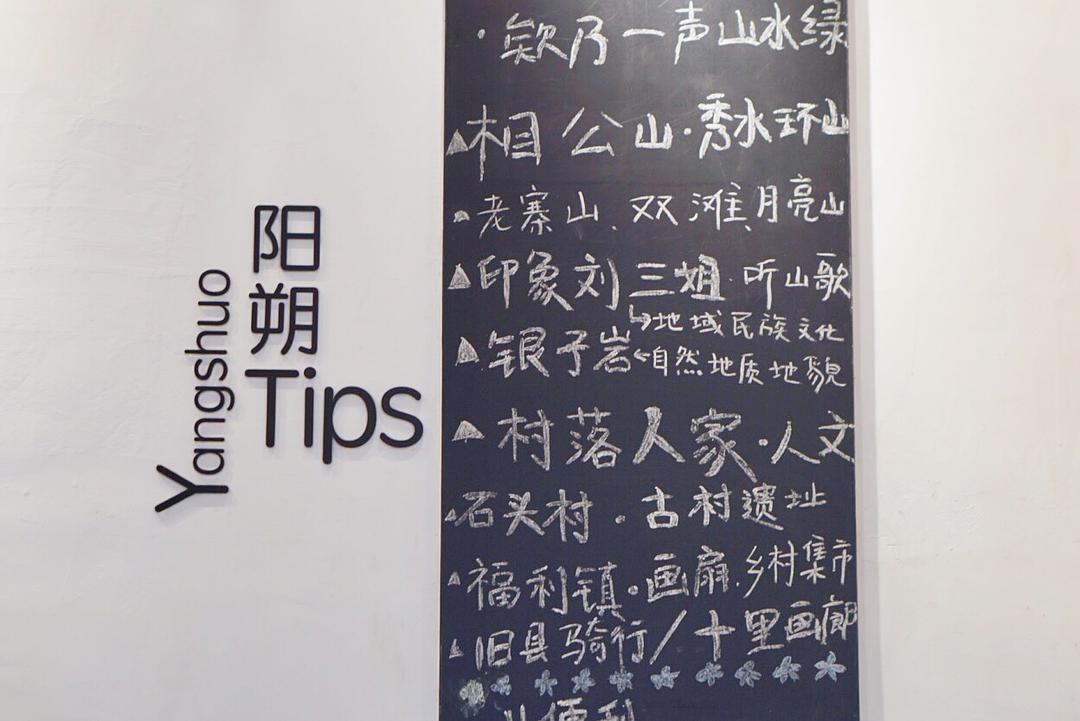 阳朔
Tips
Yangshuo
·欸乃一声山水绿
▲相公山·秀水环山
·老寨山、双滩、月亮山
▲印象刘三姐·听山歌
↳地域民族文化
▲银子岩←自然地质地貌
▲村落人家·人文
▲石头村·古村遗址
▲福利镇·画扇.乡村集市
▲旧县骑行/十里画廊
便利